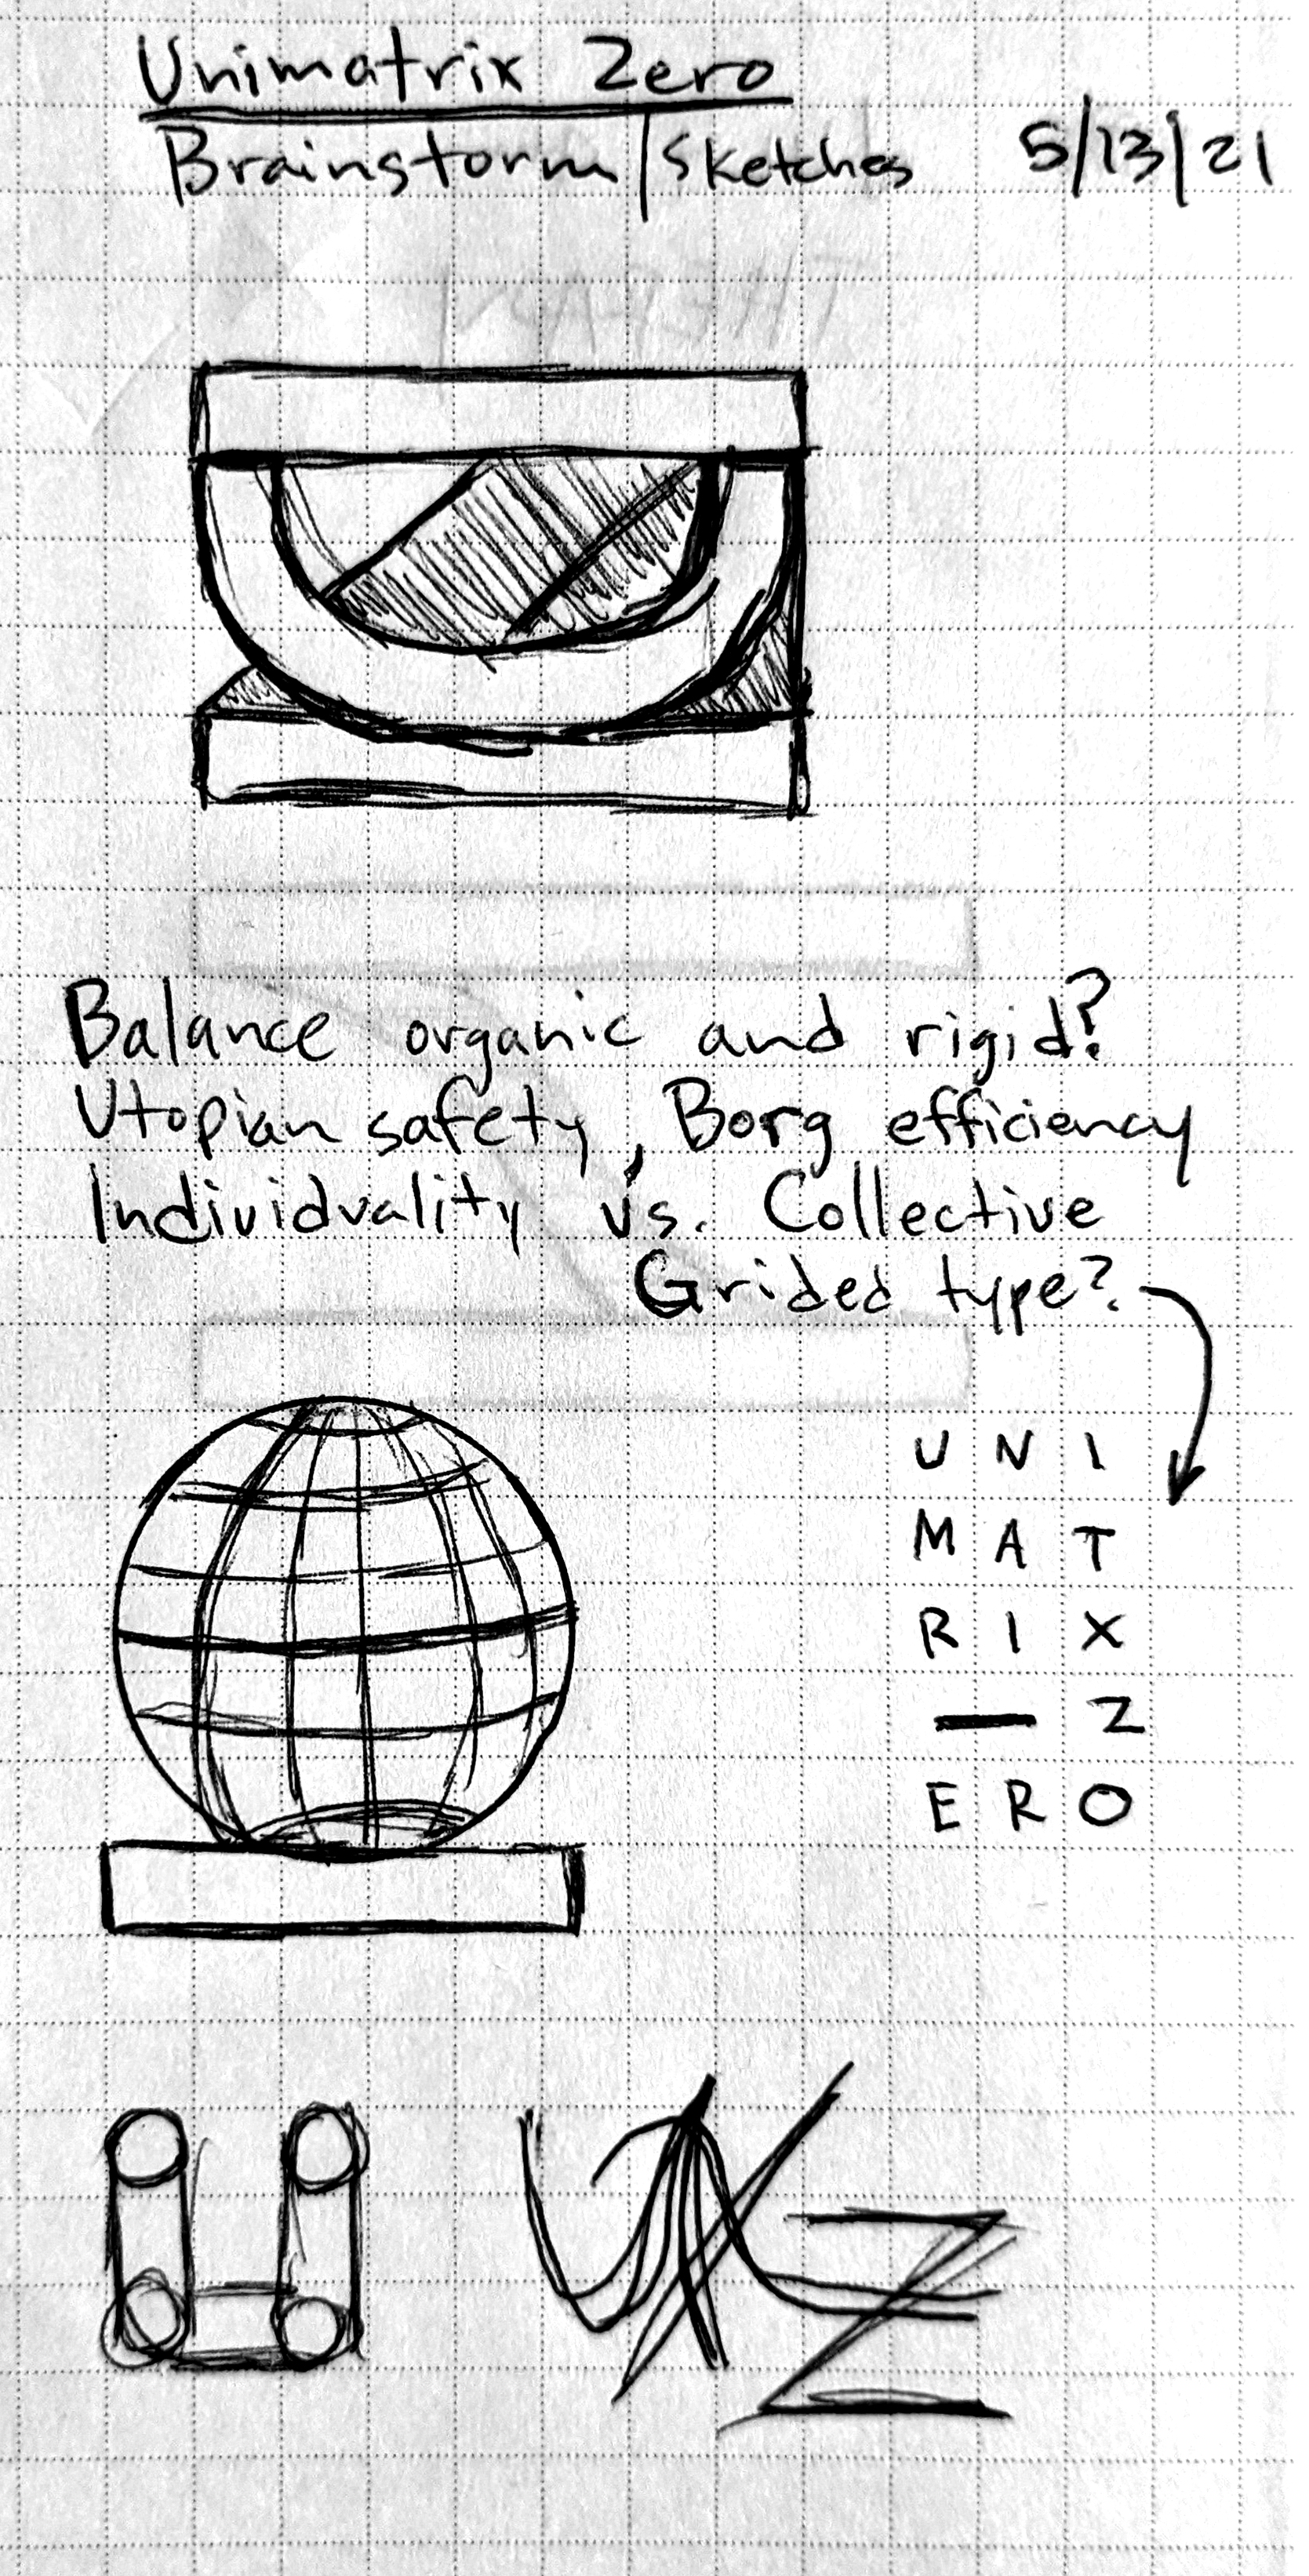 Unimatrix Zero
Brainstorm/Sketches 5/13/21
Balance organic and rigid?
Utopian safety, Borg efficiency
Individuality vs. Collective
Grided type?
U N I
M A T
R I X
— Z
E R O